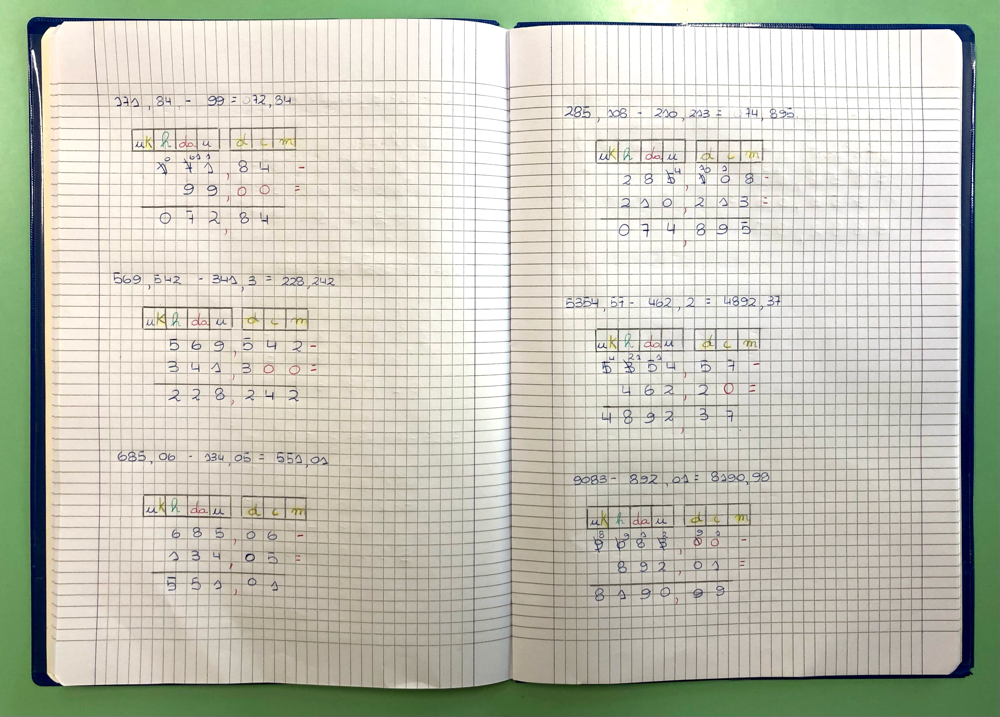 171,84 - 99 = 072,84
uK h da u d c m
171,84 -
99,00 =
072,84
569,542 - 341,3 = 228,242
uK h da u d c m
569,542 -
341,300 =
228,242
685,06 - 134,05 = 551,01
uK h da u d c m
685,06 -
134,05 =
551,01
285,108 - 210,213 = 074,895
uK h da u d c m
285,108 -
210,213 =
074,895
5354,57 - 462,2 = 4892,37
uK h da u d c m
5354,57 -
462,20 =
4892,37
9083 - 892,01 = 8190,98
uK h da u d c m
9083,00 -
892,01 =
8190,99